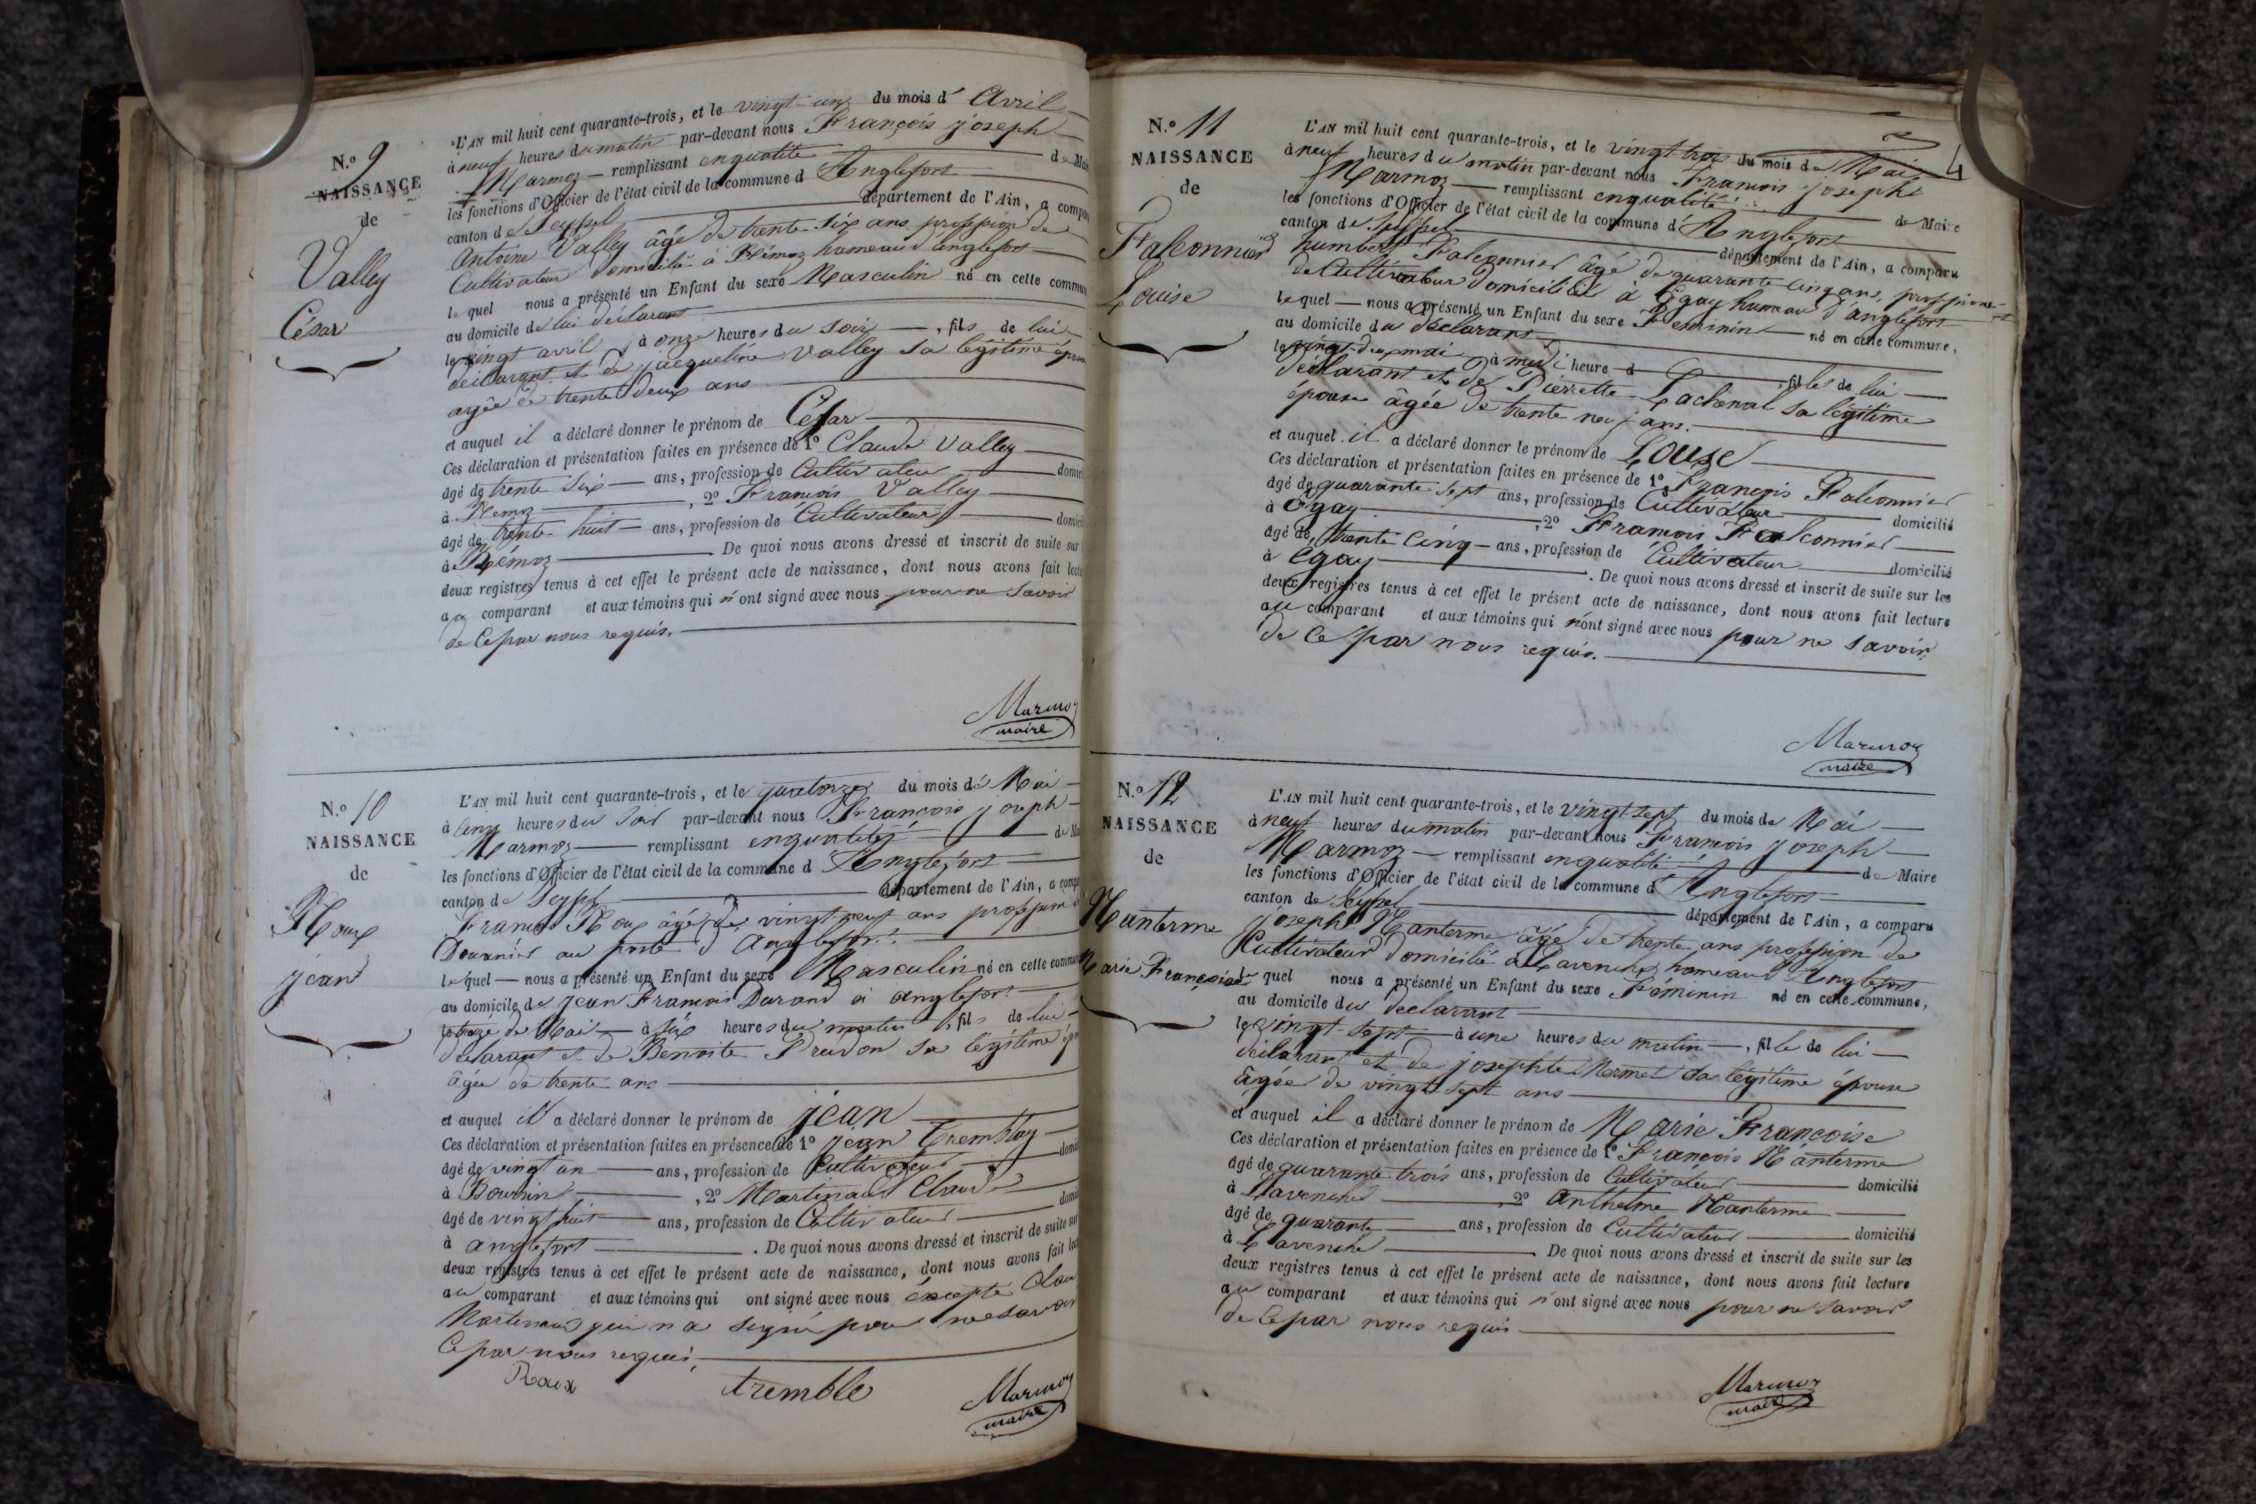 N.º 9
NAISSANCE
de
Valley
César
L'AN mil huit cent quarante-trois, et le vingt-un du mois d' Avril
à neuf heures du matin par-devant nous François joseph
Marmoz remplissant en qualité de Mai
les fonctions d'Officier de l'état civil de la commune d Anglefort
canton de Seyssel département de l'Ain, a compa
Antoine Valley âgé de trente six ans profession de
Cultivateur domicilié à Rhémoz hameau d'anglefort
le quel nous a présenté un Enfant du sexe Masculin né en cette commu
au domicile de lui déclarant
le vingt avril à onze heures du soir, fils de lui
déclarant et de jacqueline Valley sa légitime épou
agée de trente deux ans
et auquel il a déclaré donner le prénom de César
Ces déclaration et présentation faites en présence de 1º Claude Valley
âgé de trente six ans, profession de Cultivateur domici
à Rémoz, 2º François Valley
âgé de trente huit ans, profession de Cultivateur domici
à Rémoz. De quoi nous avons dressé et inscrit de suite sur
deux registres tenus à cet effet le présent acte de naissance, dont nous avons fait lectu
au comparant et aux témoins qui n'ont signé avec nous pour ne savoir
de ce par nous requis.
Marmoz
maire
N.º 10
NAISSANCE
de
Roux
jean
L'AN mil huit cent quarante-trois, et le quatorze du mois de Mai
à cinq heures du soir par-devant nous François joseph
Marmoz remplissant en qualité de Ma
les fonctions d'Officier de l'état civil de la commune d Anglefort
canton de Seyssel département de l'Ain, a compa
François Roux âgé de vingt neuf ans profession d
Douanier au poste d'Anglefort
le quel nous a présenté un Enfant du sexe Masculin né en cette commu
au domicile de jean François Durand à anglefort
le treize de Mai à six heures du matin, fils de lui
déclarant et de Benoite Prudon sa légitime ép
âgée de trente ans
et auquel il a déclaré donner le prénom de jean
Ces déclaration et présentation faites en présence de 1º jean Tremblay
âgé de vingt un ans, profession de Cultivateur domi
à Bournin, 2º Martinaud Claude
âgé de vingt huit ans, profession de Cultivateur domi
à anglefort. De quoi nous avons dressé et inscrit de suite sur
deux registres tenus à cet effet le présent acte de naissance, dont nous avons fait lec
au comparant et aux témoins qui ont signé avec nous excepté Clau
Martinaud qui n'a signé pour ne savoir
ce par nous requis.
Roux tremble Marmoz
maire
4
N.º 11
NAISSANCE
de
Falconnier
Louise
L'AN mil huit cent quarante-trois, et le vingt trois du mois de Mai
à neuf heures du matin par-devant nous François joseph
Marmoz remplissant en qualité de Maire
les fonctions d'Officier de l'état civil de la commune d'Anglefort
canton de Seyssel département de l'Ain, a comparu
humbert Falconnier âgé de quarante cinq ans, profession
de Cultivateur domicilié à Egay hameau d'anglefort
le quel nous a présenté un Enfant du sexe Feminin né en cette commune,
au domicile du déclarant
le vingt deux mai à midi heure d, fille de lui
déclarant et de Pierrette Lachenal sa légitime
épouse âgée de trente neuf ans.
et auquel il a déclaré donner le prénom de Louise
Ces déclaration et présentation faites en présence de 1º François Falconnier
âgé de quarante sept ans, profession de Cultivateur domicilié
à Egay, 2º François Falconnier
âgé de trente cinq ans, profession de Cultivateur domicilié
à Egay. De quoi nous avons dressé et inscrit de suite sur les
deux registres tenus à cet effet le présent acte de naissance, dont nous avons fait lecture
au comparant et aux témoins qui n'ont signé avec nous pour ne savoir
de ce par nous requis.
Marmoz
maire
N.º 12
NAISSANCE
de
Nanterme
Marie Françoise
L'AN mil huit cent quarante-trois, et le vingt sept du mois de Mai
à neuf heures du matin par-devant nous François joseph
Marmoz remplissant en qualité de Maire
les fonctions d'Officier de l'état civil de la commune d'Anglefort
canton de Seyssel département de l'Ain, a comparu
joseph Nanterme âgé de trente ans profession de
Cultivateur domicilié à Lavenche hameau d'Anglefort
le quel nous a présenté un Enfant du sexe Féminin né en cette commune,
au domicile du déclarant
le vingt-sept à une heures du matin, fille de lui
déclarant et de josephte Mermet sa légitime épouse
âgée de vingt sept ans
et auquel il a déclaré donner le prénom de Marie Françoise
Ces déclaration et présentation faites en présence de 1º François Nanterme
âgé de quarante trois ans, profession de Cultivateur domicilié
à Lavenche, 2º Anthelme Nanterme
âgé de quarante ans, profession de Cultivateur domicilié
à Lavenche. De quoi nous avons dressé et inscrit de suite sur les
deux registres tenus à cet effet le présent acte de naissance, dont nous avons fait lecture
au comparant et aux témoins qui n'ont signé avec nous pour ne savoir
de ce par nous requis
Marmoz
maire